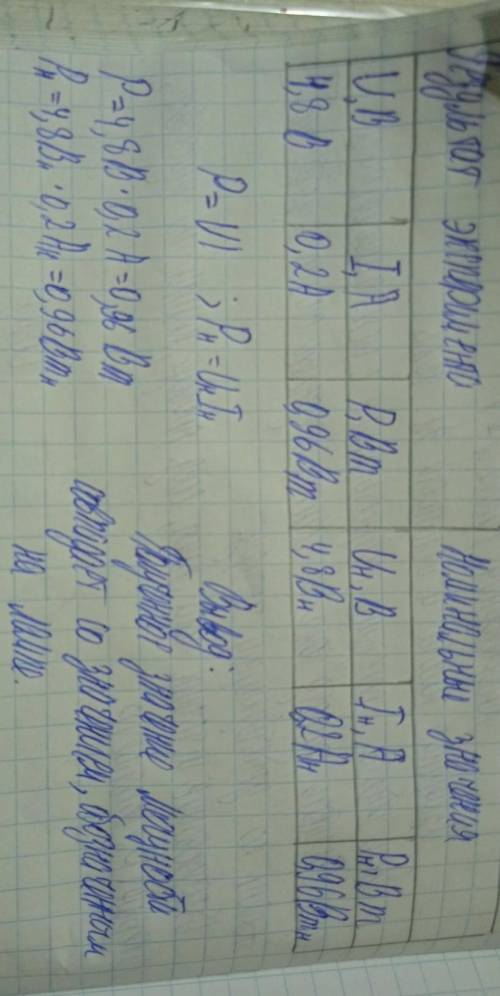 Результат эксперимента Номинальные значения
U, В I, А P, Вт Uн, В Iн, А Pн, Вт
4,8 В 0,2А 0,96Вт 4,8Вн 0,2Ан 0,96Втн
P = UI ; Pн = UнIн
P = 4,8В · 0,2 А = 0,96 Вт
Pн = 4,8Вн · 0,2Ан = 0,96Втн
Вывод:
значение мощности
совпадает со значением,
на лампе.